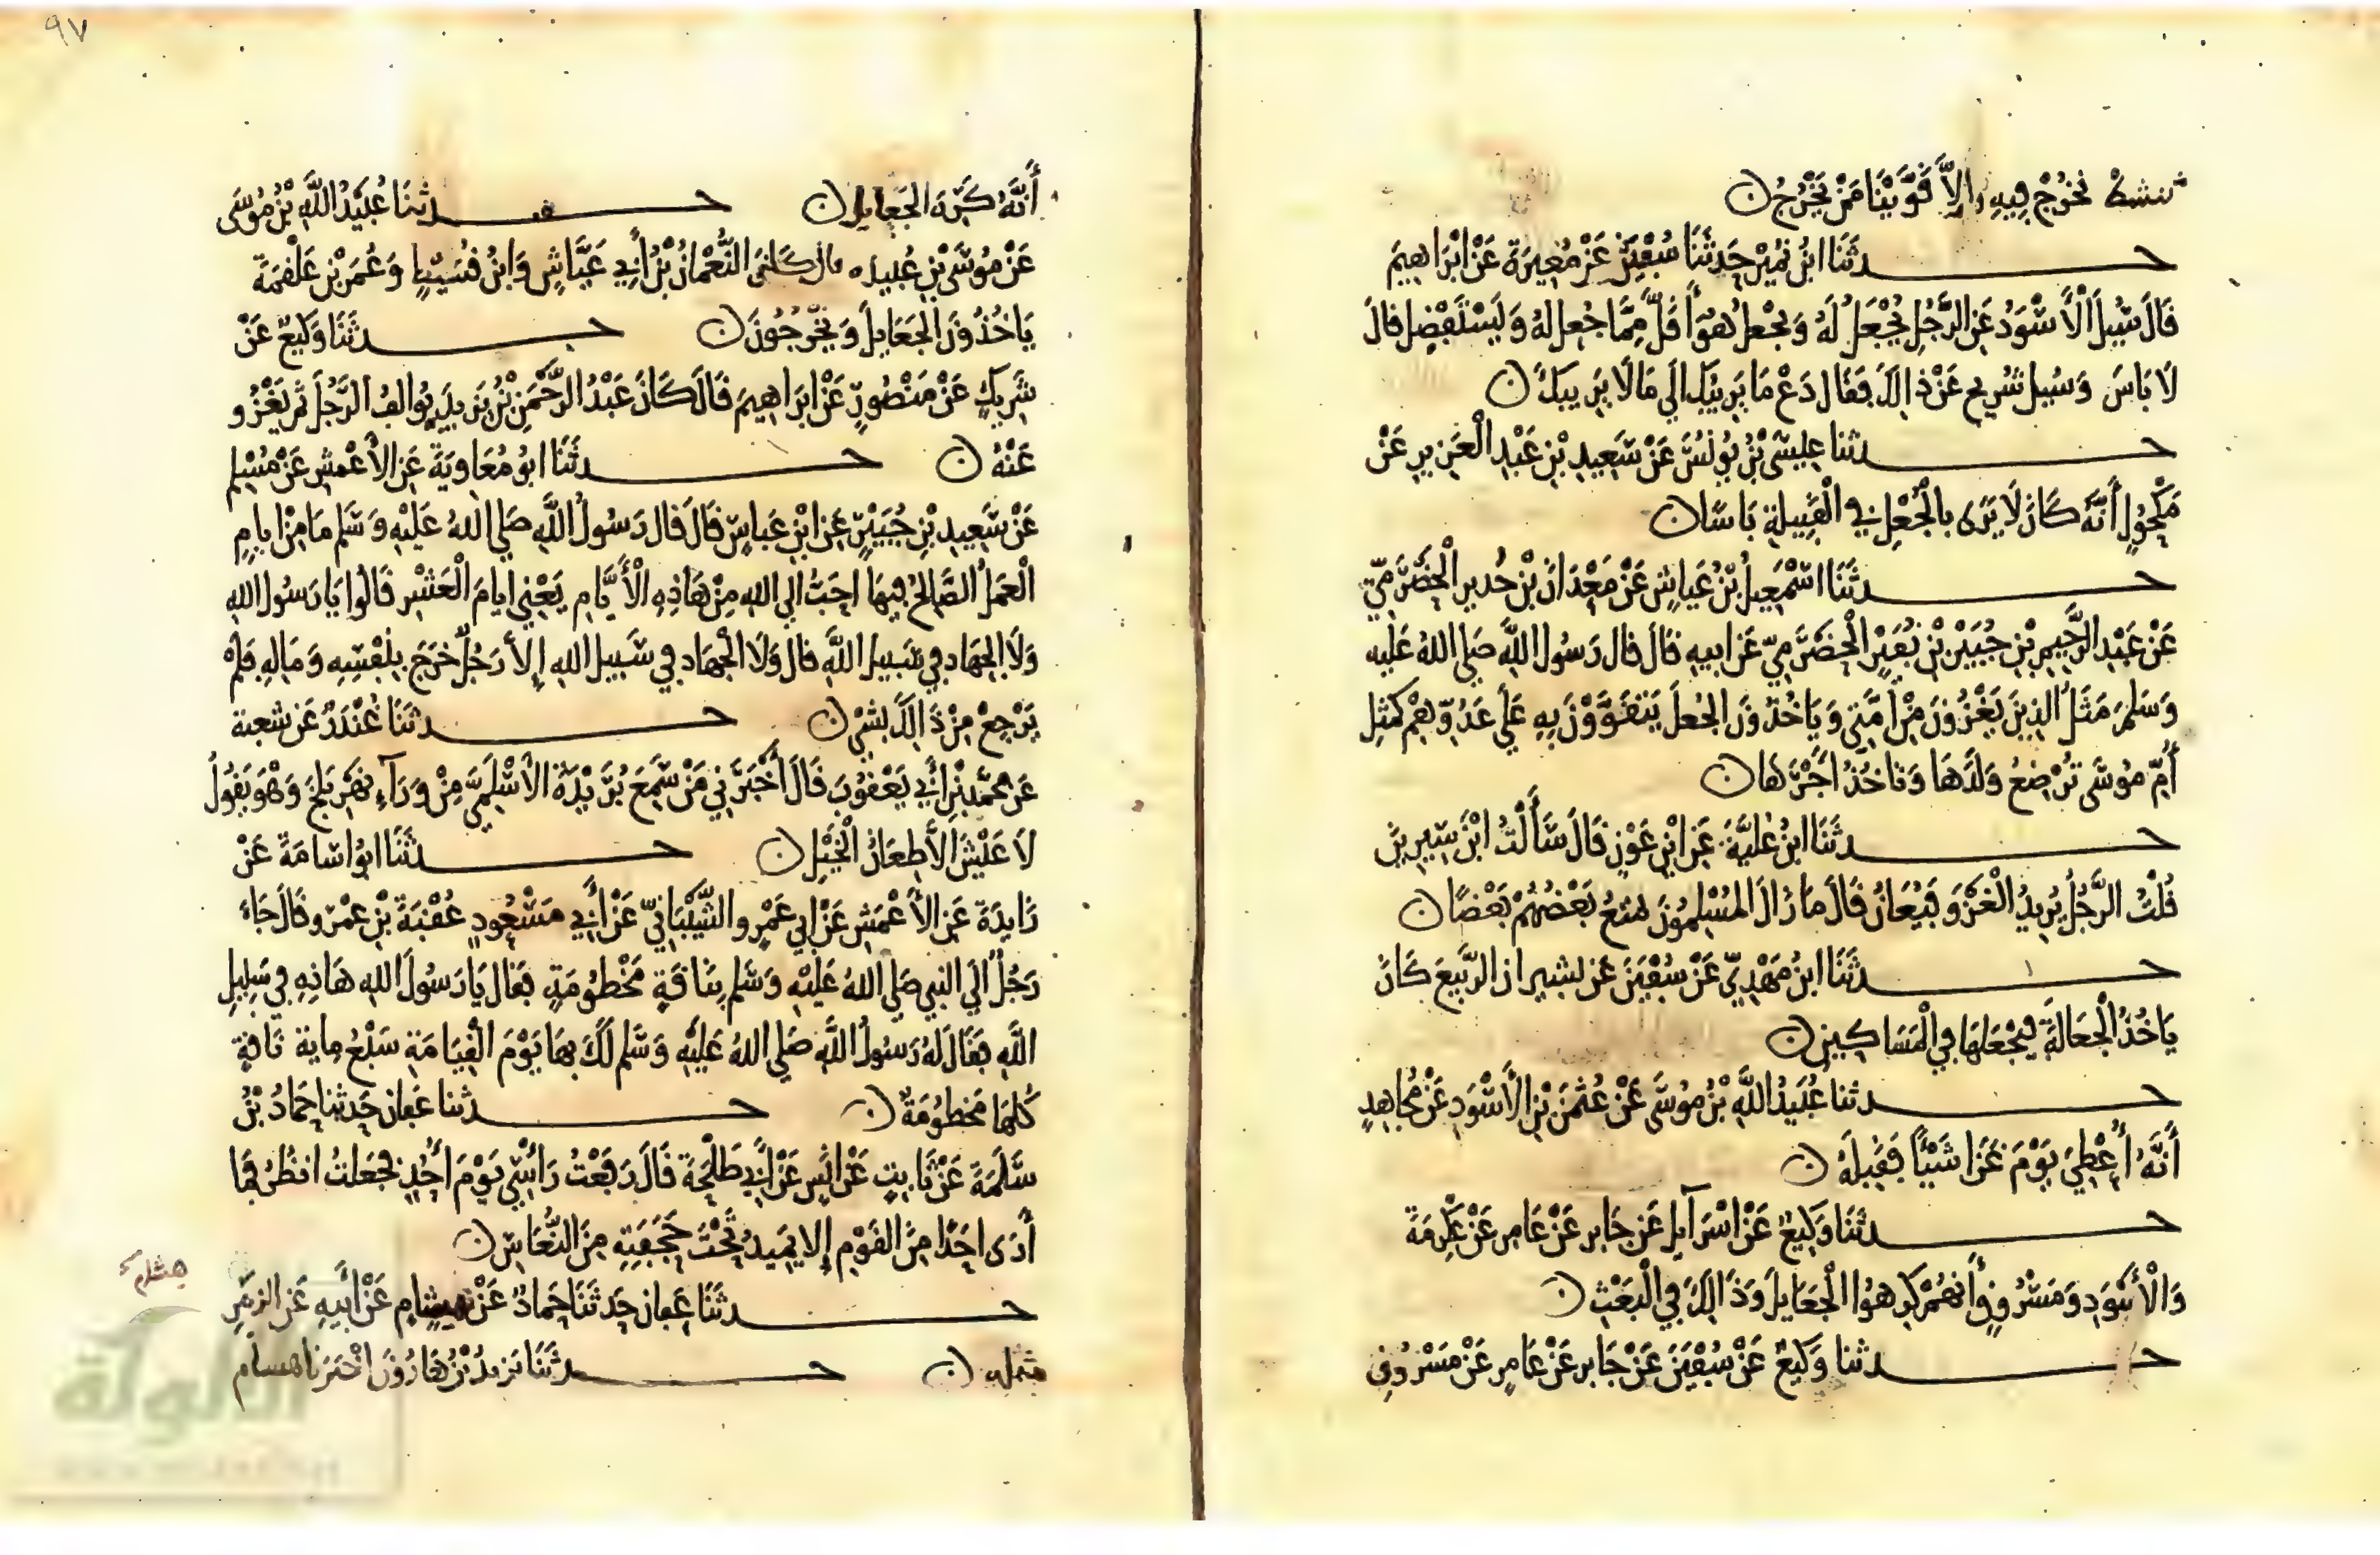 ننشط نخرج فيه والا قوينا من يخرج ن
حدثنا ابن نمير حدثنا سفين عن مغيرة عن ابراهيم
قال سيل الأسود عن الرجل يجعل له ويجعل هو أقل مما جعل له ويستفضل قال
لا باس وسيل شريح عن ذلك فقال دع ما يريبك الي ما لا يريبك ن
حدثنا عيسى بن يونس عن سعيد بن عبد العزيز عن
مكحول أنه كان لا يرى بالجعل في القبيلة باسا ن
حدثنا اسمعيل بن عياش عن معدان بن حدير الحضرمي
عن عبد الرحمن بن جبير بن نفير الحضرمي عن ابيه قال قال رسول الله صلى الله عليه
وسلم مثل الذين يغزون من أمتي وياخذون الجعل يتقوون به على عدوهم كمثل
أم موسى ترضع ولدها وتاخذ اجرها ن
حدثنا ابن علية عن ابن عون قال سألت ابن سيرين
قلت الرجل يريد الغزو فيعان قال ما زال المسلمون يمتع بعضهم بعضا ن
حدثنا ابن مهدي عن سفين عن بشير ان الربيع كان
ياخذ الجعالة فيجعلها في المساكين ن
حدثنا عبيد الله بن موسى عن عثمن بن الأسود عن مجاهد
أنه أعطي يوم غزا شيئا فقبله ن
حدثنا وكيع عن اسرآيل عن جابر عن عامر عن عكرمة
والأسود ومسروق أنهم كرهوا الجعايل وذالك في البعث ن
حدثنا وكيع عن سفين عن جابر عن عامر عن مسروق
٩٧
أنه كره الجعايل ن حدثنا عبيد الله بن موسى
عن موسى بن عبيده قال كان النعمان بن أبي عياش وابن قسيط وعمر بن علقمة
ياخذون الجعايل ويخرجون ن حدثنا وكيع عن
شريك عن منصور عن ابراهيم قال كان عبد الرحمن بن يزيد يوالف الرجل ثم يغزو
عنه ن حدثنا ابو معاوية عن الأعمش عن مسلم
عن سعيد بن جبير عن ابن عباس قال قال رسول الله صلى الله عليه وسلم ما من ايام
العمل الصالح فيها احب الي الله من هاذه الأيام يعني ايام العشر قالوا يا رسول الله
ولا الجهاد في سبيل الله قال ولا الجهاد في سبيل الله إلا رجل خرج بنفسه وماله فلم
يرجع من ذالك بشي ن حدثنا غندر عن شعبة
عن محمد بن أبي يعقوب قال أخبرني من سمع بريدة الأسلمي من ورآء نهر بلخ وهو يقول
لا عيش إلا طعان الخيل ن حدثنا ابو اسامة عن
زايدة عن الأعمش عن ابي عمرو الشيباني عن أبي مسعود عقبة بن عمرو قال جاء
رجل الي النبي صلى الله عليه وسلم بناقة مخطومة فقال يا رسول الله هاذه في سبيل
الله فقال له رسول الله صلى الله عليه وسلم لك بها يوم القيامة سبع ماية ناقة
كلها مخطومة ن حدثنا عفان حدثنا حماد بن
سلمة عن ثابت عن انس عن أبي طلحة قال رفعت رأسي يوم أحد فجعلت انظر فما
أرى احدا من القوم إلا يميد تحت حجفته من النعاس ن
حدثنا عفان حدثنا حماد عن هشام عن أبيه عن الزبير
هشام
مثله ن حدثنا يزيد بن هارون اخبرنا هسام
الألوكة